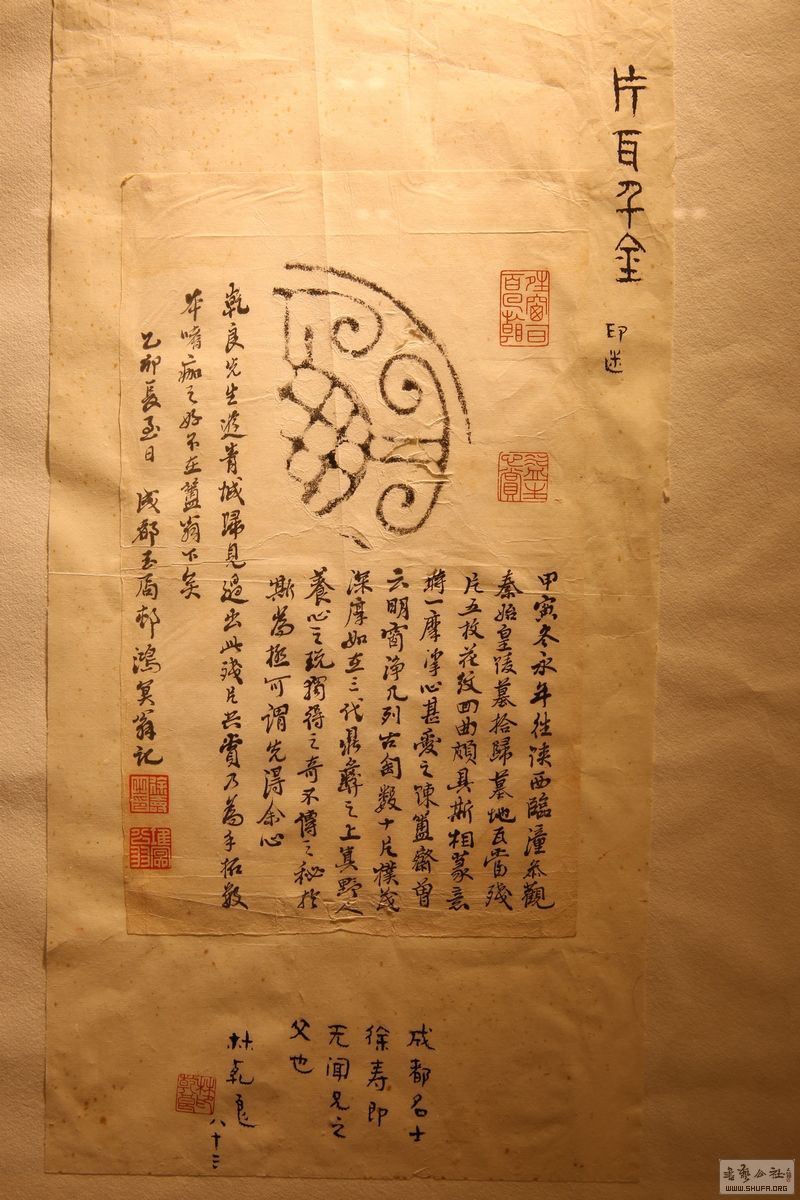 片瓦千金
印迷
甲寅冬永年往陝西臨潼參觀
秦始皇陵墓拾歸墓地瓦當殘
片五枚花紋回曲頗具斯相篆意
時一摩挲心甚愛之陳簠齋曾
云明窗淨几列古匋數十片樸茂
深厚如在三代鼎彝之上真野人
養心之玩獨得之奇不傳之秘於
斯為極可謂先得余心
乾良先生遊青城歸見過出此殘片共賞乃為手拓數
本嗜痂之好不在簠翁下矣
乙卯長至日 成都玉局邨鴻冥翁記
成都名士
徐寿即
无闻兄之
父也
林乾良
八十二
WWW.SHUFA.ORG